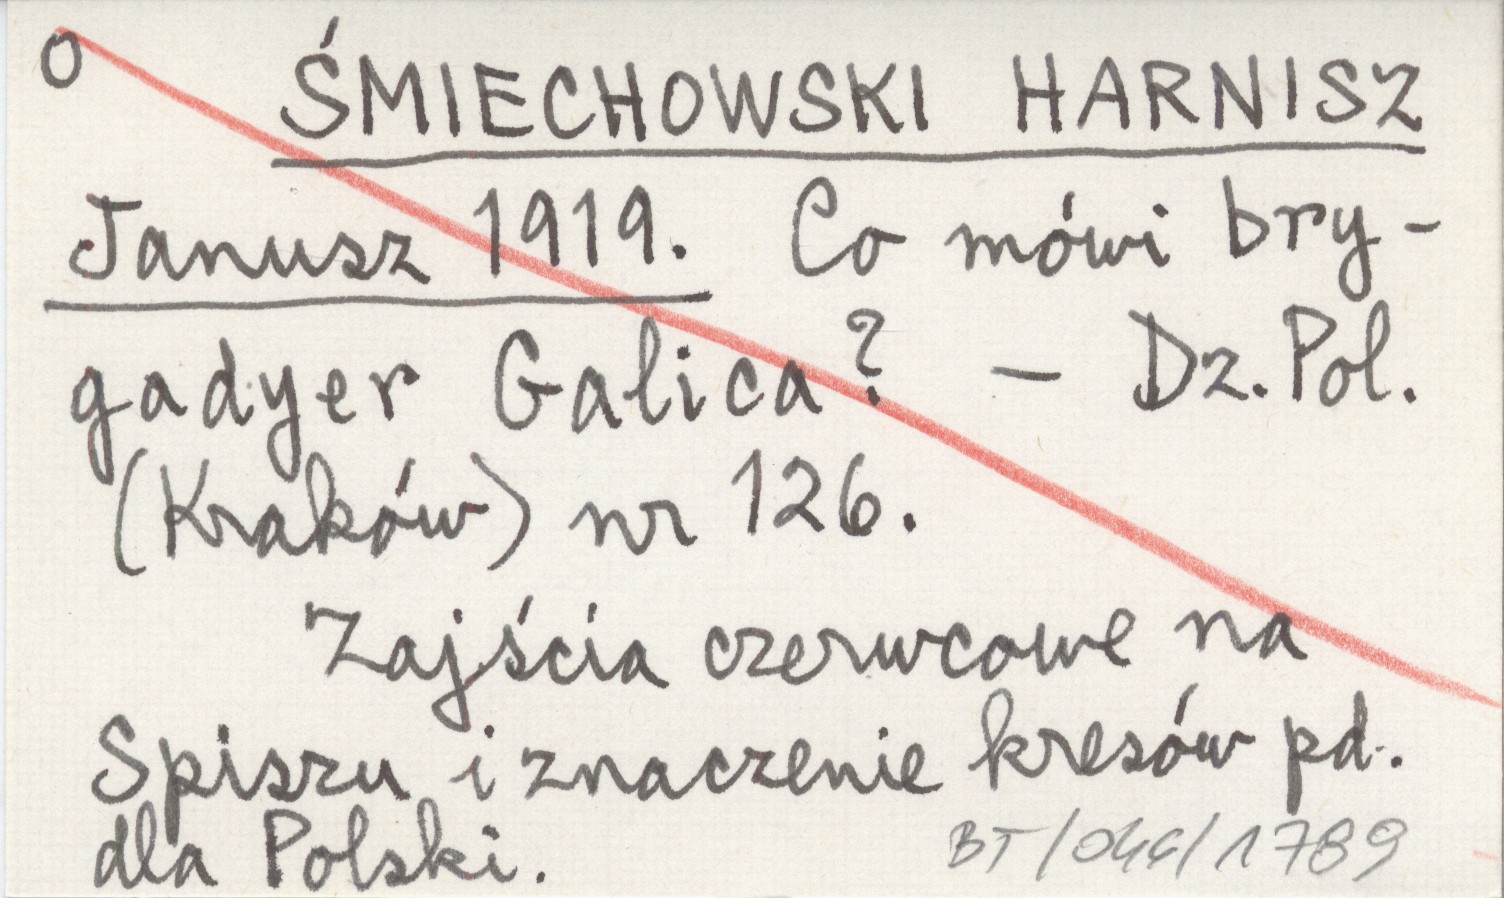 O ŚMIECHOWSKI HARNISZ
Janusz 1919. Co mówi bry-
gadyer Galica? – Dz. Pol.
(Kraków) nr 126.
Zajścia czerwcowe na
Spiszu i znaczenie kresów pd.
dla Polski.
BT/046/1789